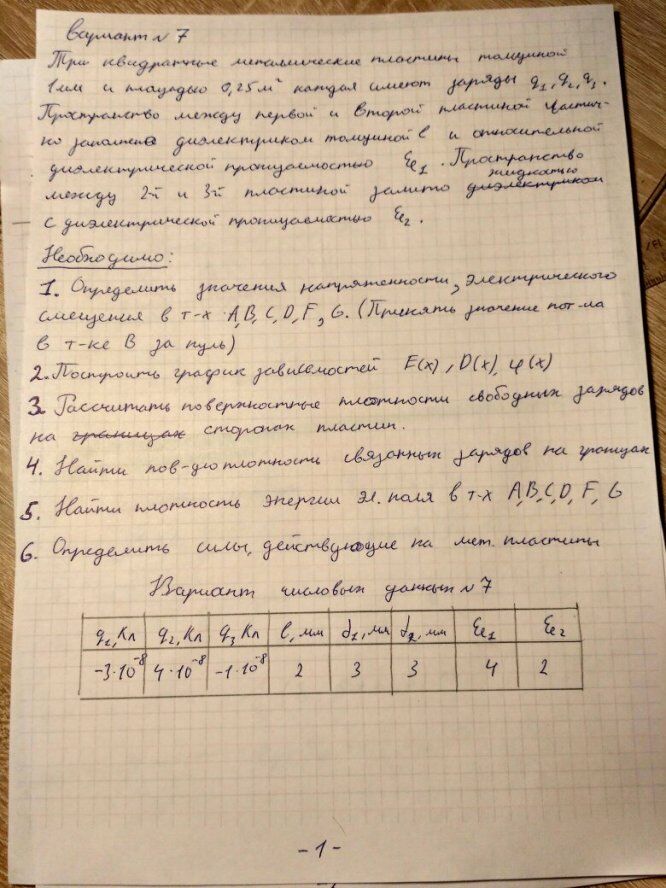 Вариант №7
Три квадратные металлические пластины толщиной
1мм и площадью 0,25м² каждая имеют заряды q₁, q₂, q₃.
Пространство между первой и второй пластиной частич-
но заполнено диэлектриком толщиной l и относительной
диэлектрической проницаемостью εe₁. Пространство
жидкостью
между 2-й и 3-й пластиной залито диэлектриком
с диэлектрической проницаемостью εe₂.
Необходимо:
1. Определить значения напряженности, электрического
смещения в т-х A, B, C, D, F, G. (Принять значение пот-ла
в т-ке B за нуль)
2. Построить график зависимостей E(x), D(x), φ(x)
3. Рассчитать поверхностные плотности свободных зарядов
на границах сторонах пластин.
4. Найти пов-ую плотность связанных зарядов на границах
5. Найти плотность энергии эл. поля в т-х A, B, C, D, F, G
6. Определить силы, действующие на мет. пластины
Вариант числовых данных №7
q₁, Кл q₂, Кл q₃ Кл l, мм d₁, мм d₂, мм εe₁ εe₂
-3·10⁻⁸ 4·10⁻⁸ -1·10⁻⁸ 2 3 3 4 2
-1-